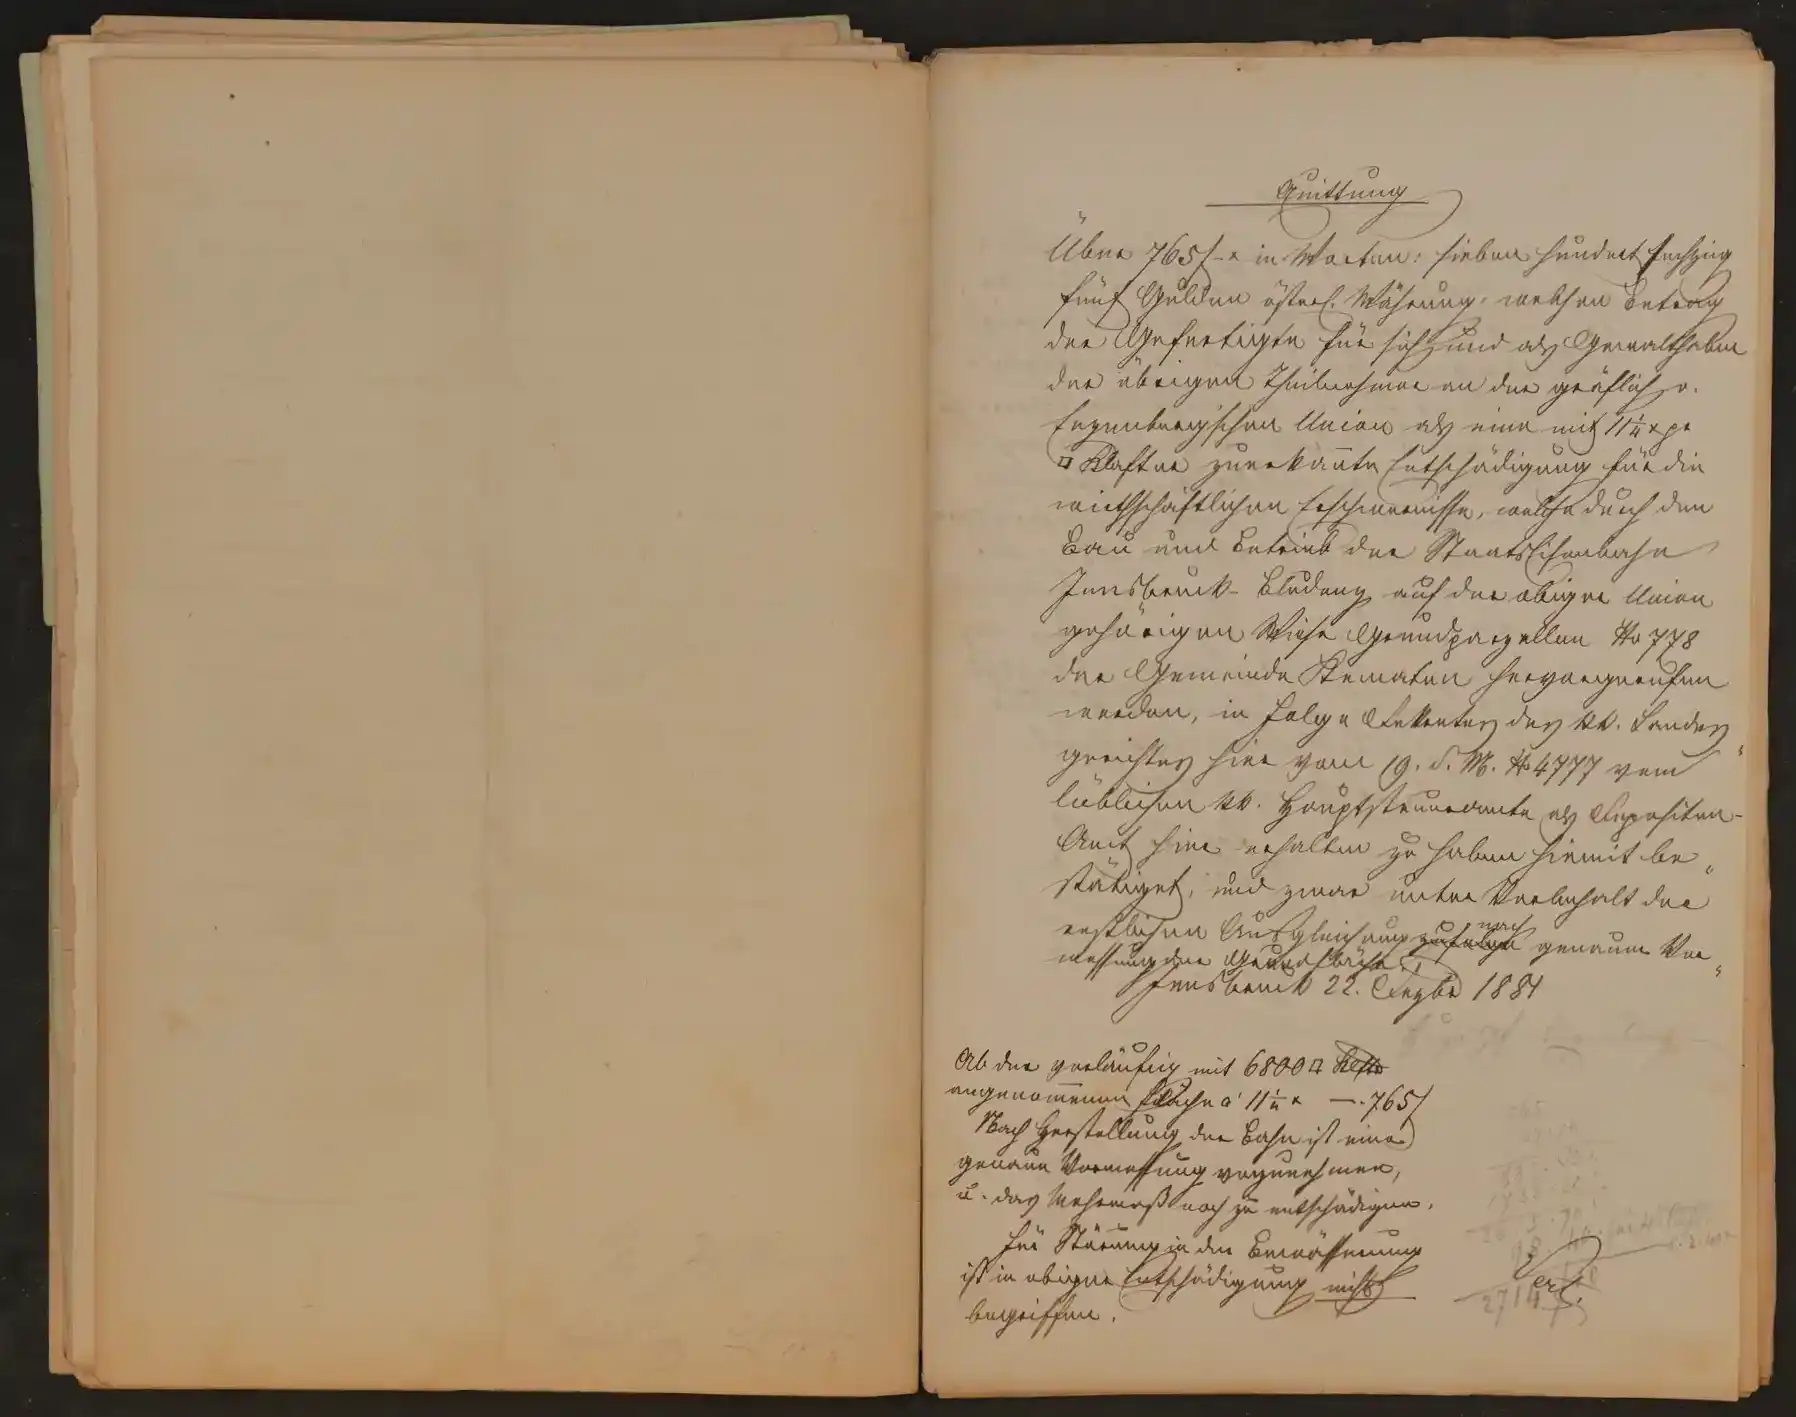 Quittung
Über 765 f - x in Worten: sieben hundert sechzig
fünf Gulden österr. Währung, welchen Betrag
der Gefertigte für sich und als Gewalthaber
der übrigen Theilnehmer an der gräflich v.
Enzenbergischen Union als eine mit 11¼ x pr
□ Klafter zuerkannte Entschädigung für die
wirthschaftlichen Erschwernisse, welche durch den
Bau und Betrieb der Staatseisenbahn
Innsbruck-Bludenz auf der obiger Union
gehörigen Wiese Grundparzellen No 778
der Gemeinde Kematen hervorgerufen
werden, in Folge Dekretes des kk. Landes
gerichtes hier vom 19. d. M. No 4777 vom
löblichen kk. Hauptsteueramte als Depositen-
Amt hier erhalten zu haben hiemit be"
stätiget, und zwar unter Vorbehalt der
restlichen Ausgleichung zufolge nach genauer Ver"
messung der Grundfläche.
Innsbruck 22. Dezbr 1881
Ab der vorläufig mit 6800 □ Klftr
angenommenen Fläche a 11¼ x —. 765 f
Nach Herstellung der Bahn ist eine
genaue Vermessung vorzunehmen,
u. das Mehrmaß noch zu entschädigen.
Für Störung in der Bewässerung
ist in obiger Entschädigung nicht
begriffen.